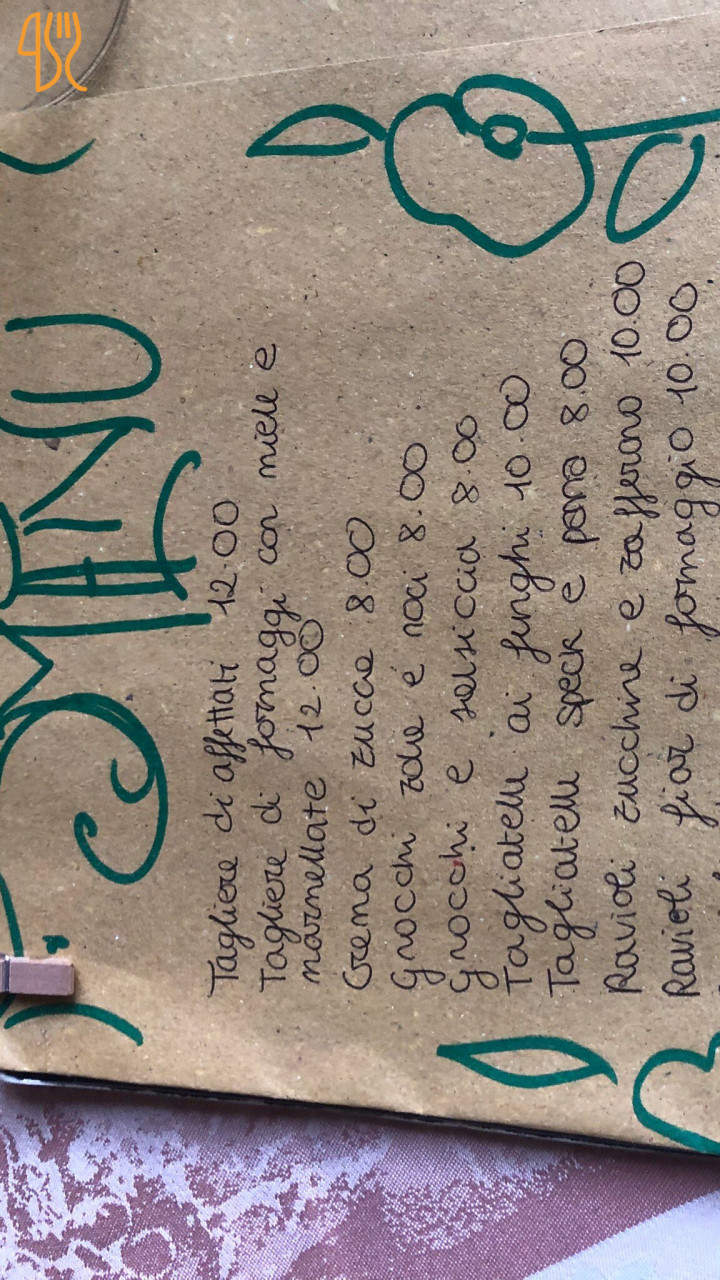 MENU
Tagliere di affettati 12.00
Tagliere di formaggi con miele e
marmellate 12.00
Crema di zucca 8.00
Gnocchi zola e noci 8.00
Gnocchi e salsiccia 8.00
Tagliatelle ai funghi 10.00
Tagliatelle speck e panna 8.00
Ravioli zucchine e zafferano 10.00
Ravioli fior di formaggio 10.00